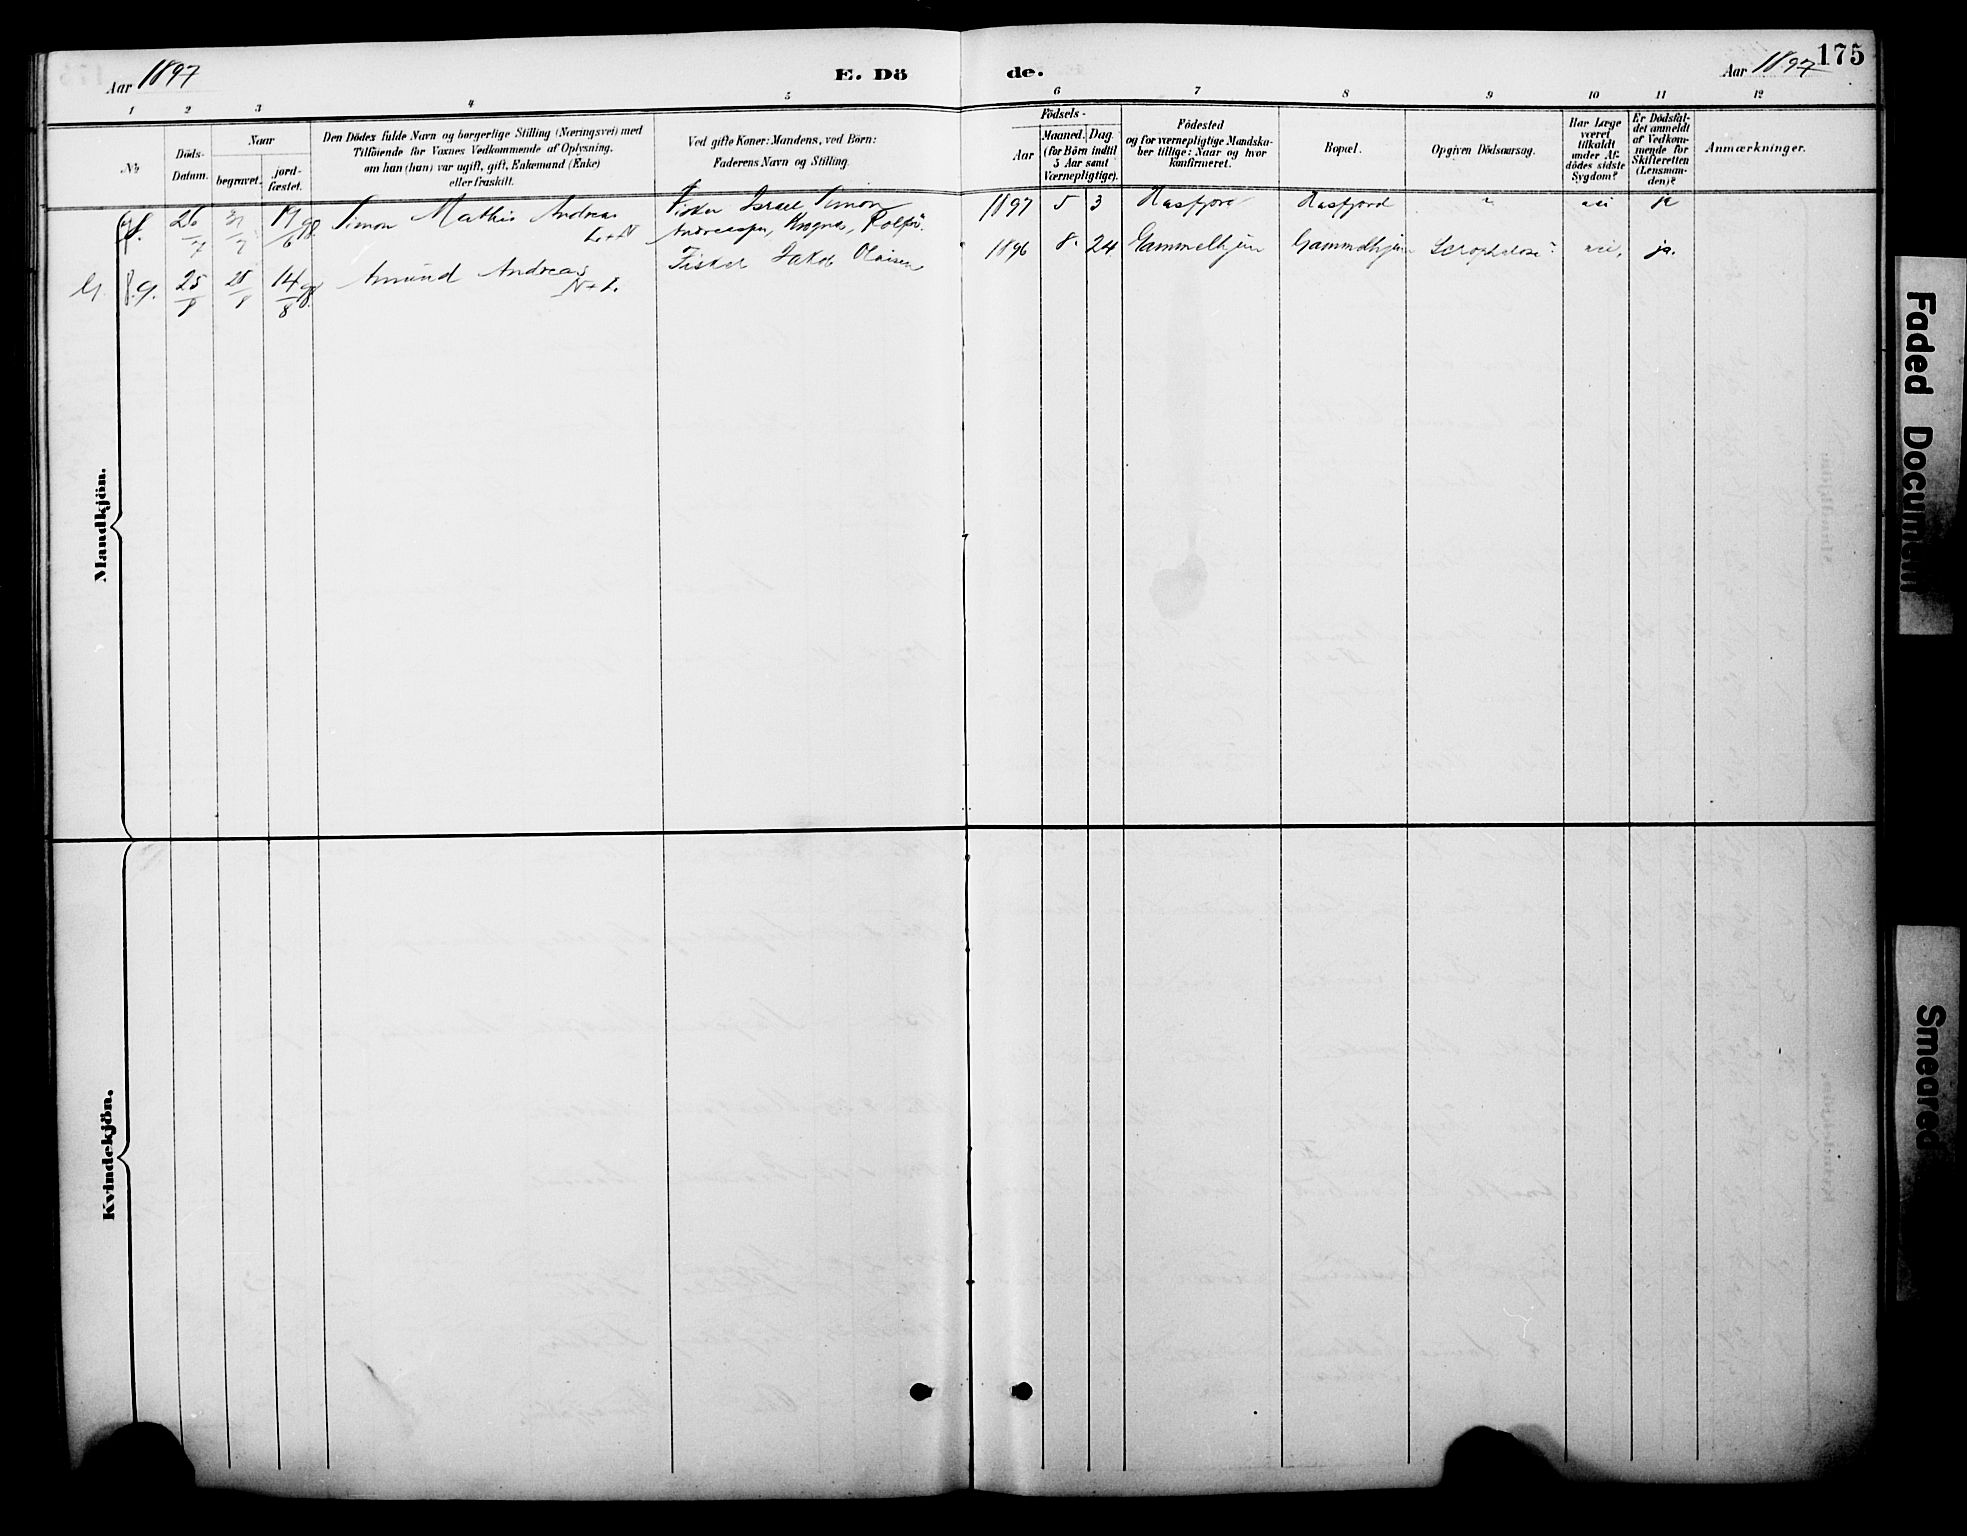 Aar 1897
E. Dö
de.
Aar 1897
175
1 2 3 4 5 6 7 8 9 10 11 12
№
Döds-
Datum.
Naar
begravet.
jord-
fæstet.
Den Dödes fulde Navn og borgerlige Stilling (Næringsvei) med
Tilföiende for Voxnes Vedkommende af Oplysning,
om han (hun) var ugift, gift, Enkemand (Enke)
eller fraskilt.
Ved gifte Koner: Mandens, ved Börn:
Faderens Navn og Stilling.
Födsels-
Aar
Maaned.
Dag.
(for Börn indtil
5 Aar samt
Værnepligtige).
Födested
og for værnepligtige Mandska-
ber tillige: Naar og hvor
konfirmeret.
Bopæl.
Opgiven Dödsaarsag.
Har Læge
været
tilkaldt
under Af-
dödes sidste
Sygdom?
Er Dödsfal-
det anmeldt
af Vedkom-
mende for
Skifteretten
(Lensman-
den)?
Anmærkninger.
8. 26/7 31/7 19/6 98. Simon Mathis Andreas Fisker Israel Simon 1897 5 3 Hasfjord Hasfjord " nei ja
L+N Andreassen, Rolfsö.
9. 25/8 28/8 14/8 98. Amund Andreas Fisker Jakob Olaisen 1896 8. 24 Gammelhjem Gammelhjem Scrophelose? nei, ja.
N+L.
Mandkjön.
Kvindekjön.
Faded Document
Smeared